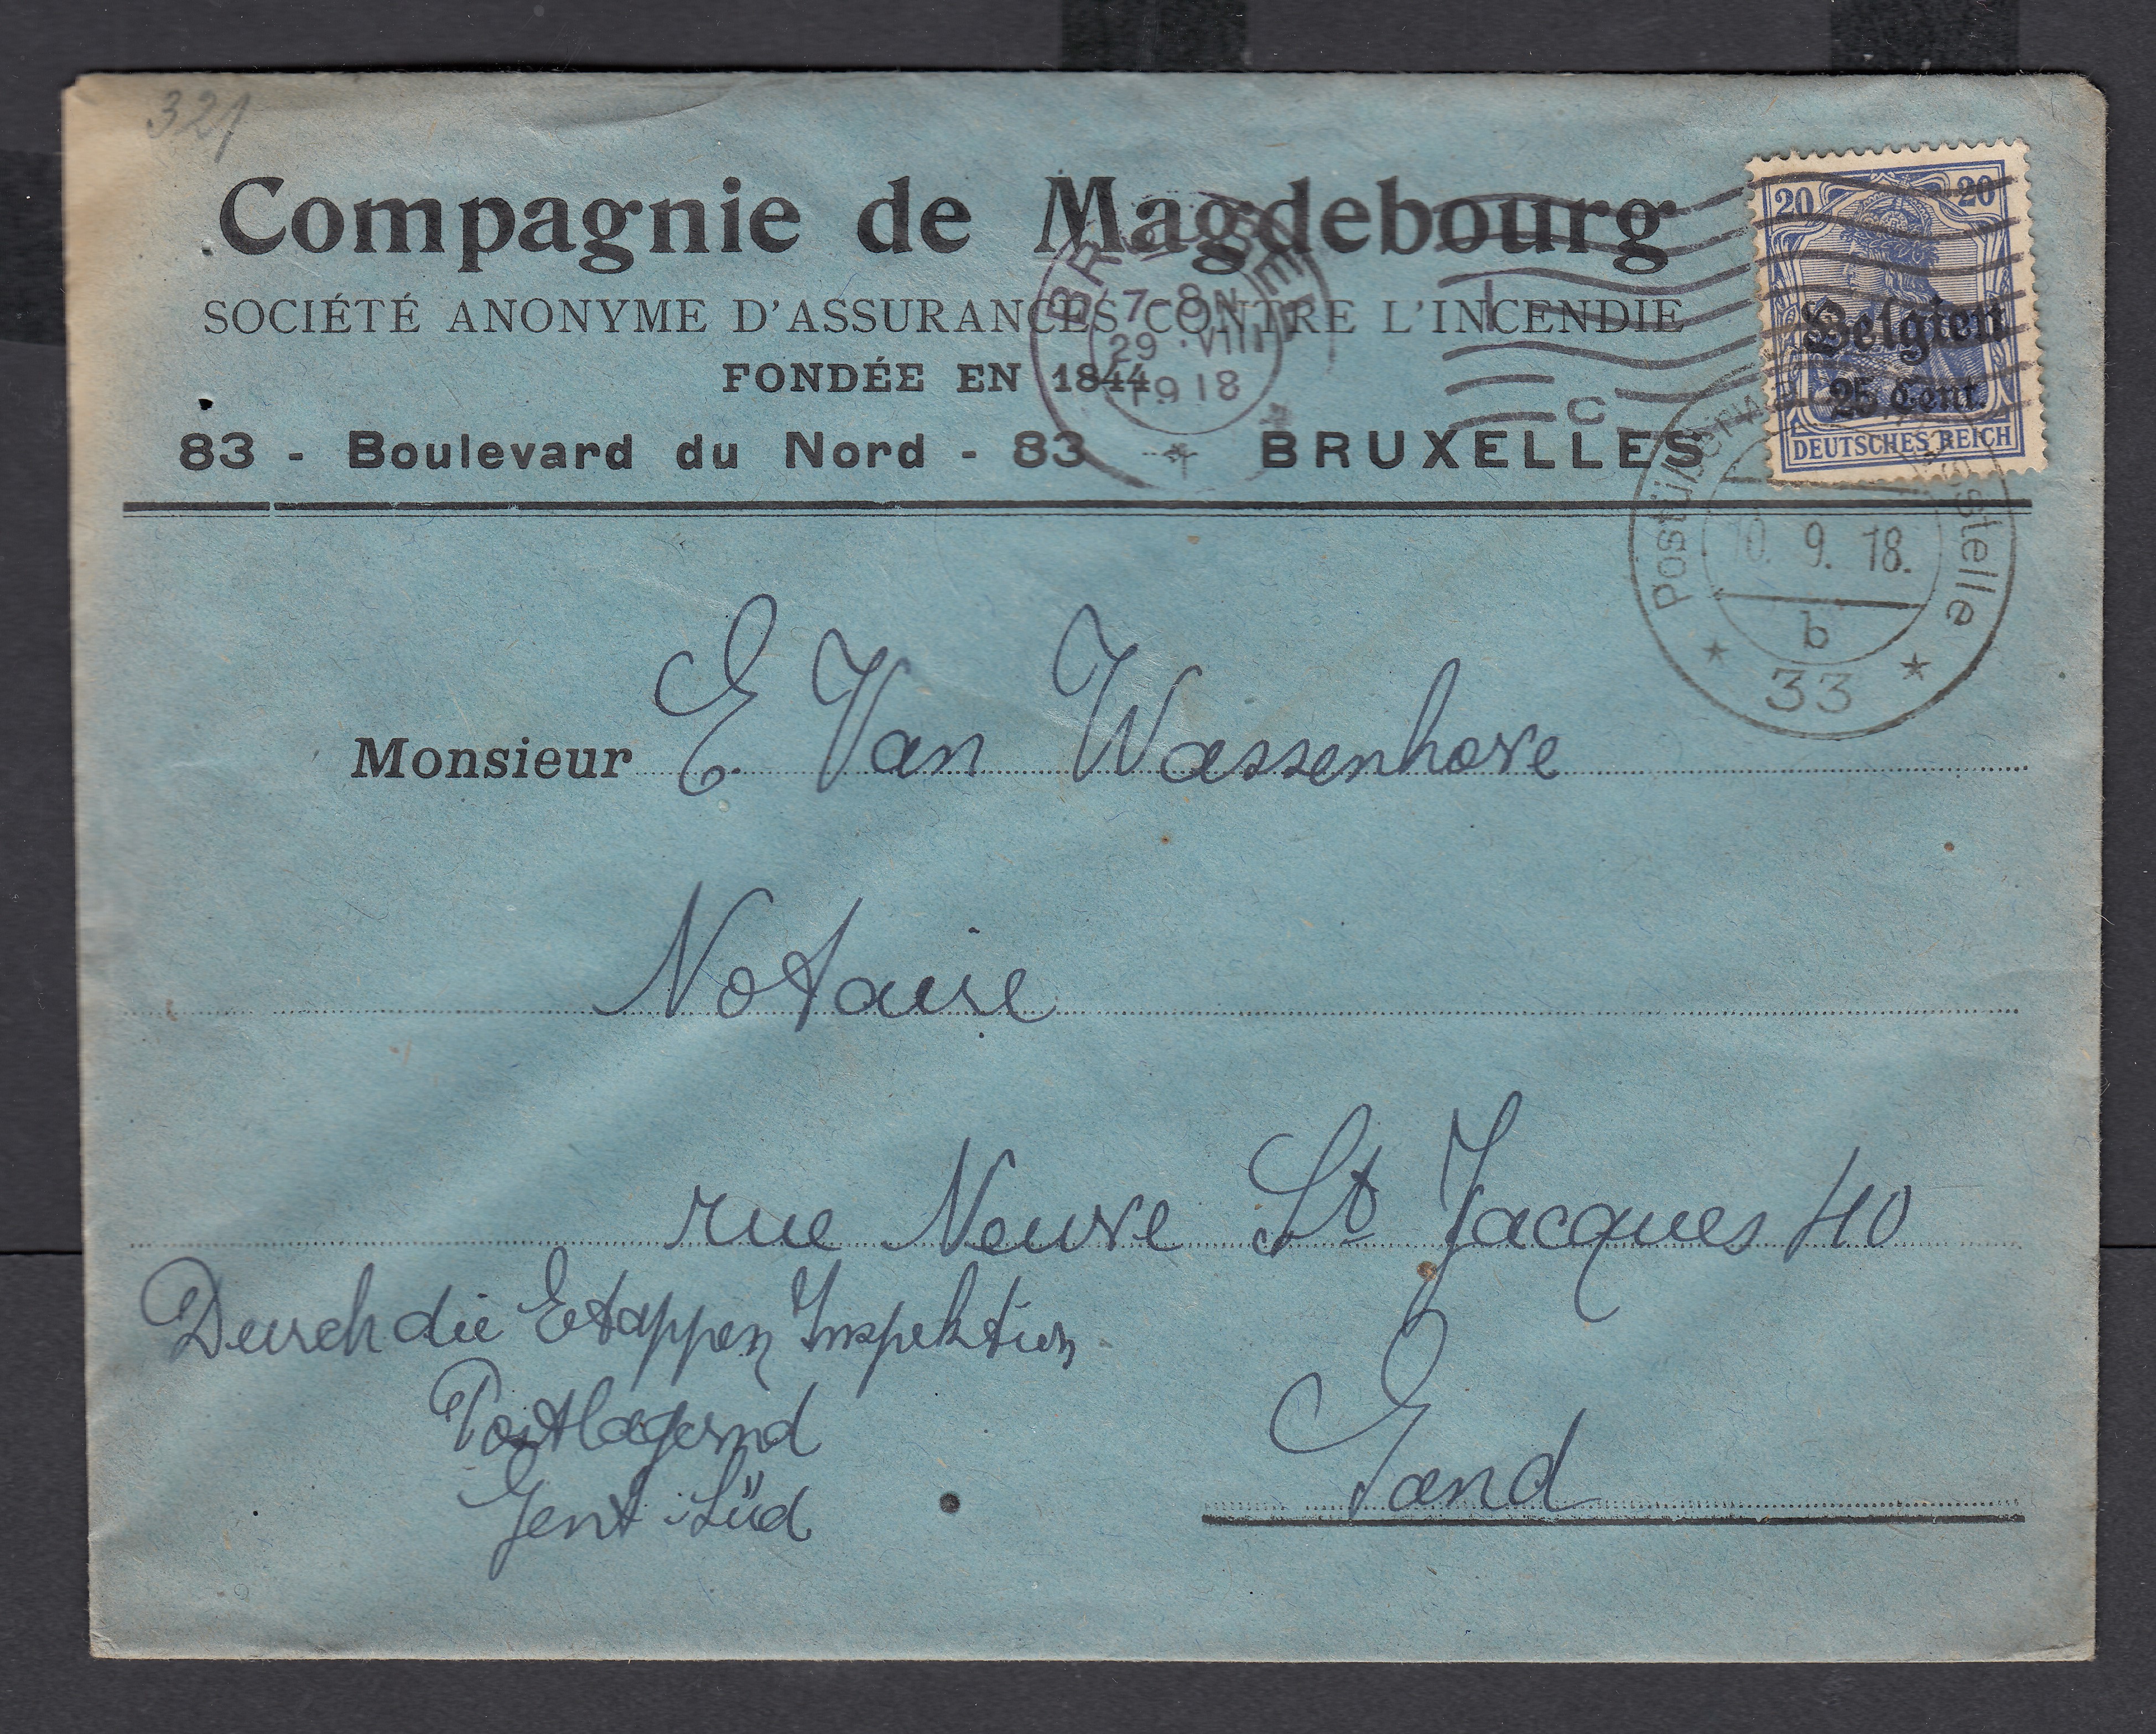 321
Compagnie de Magdebourg
SOCIÉTÉ ANONYME D'ASSURANCES CONTRE L'INCENDIE
FONDÉE EN 1844
83 - Boulevard du Nord - 83 BRUXELLES
7-8N
29 .VIII
1918
1
C
20 20
Belgien
25 Cent.
DEUTSCHES REICH
10. 9. 18.
b
33
Monsieur E. Van Wassenhove
Notaire
rue Neuve St Jacques 40
Durch die Etappen Inspektion
Postlagernd
Gent-Süd
Gand